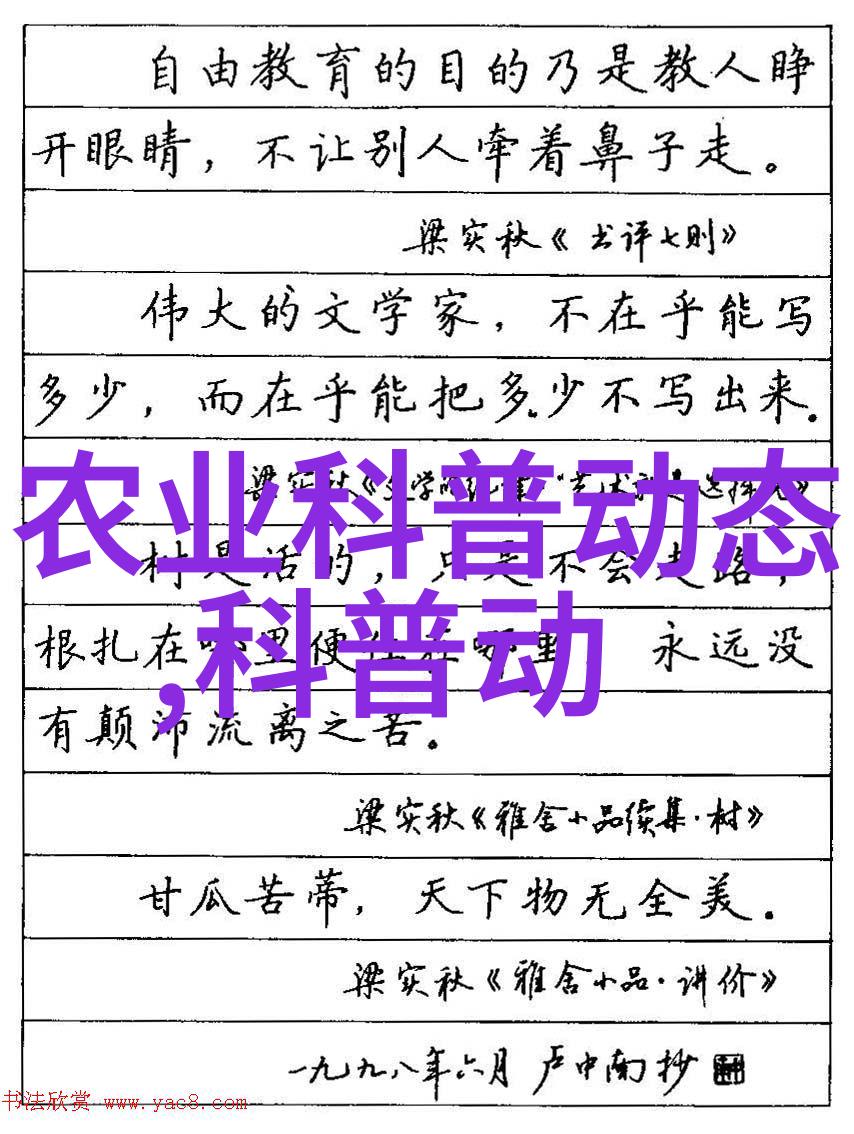 自由教育的目的乃是教人睁
开眼睛，不让别人牵着鼻子走。
梁实秋《书评七则》
伟大的文学家，不在乎能写
多少，而在乎能把多少不写出来.
梁实秋《文学的纪律》
农业科普动态
树是活的，只是不会走路，
根扎在哪里便住在哪里 永远没
,科普动
有颠沛流离之苦。
梁实秋《雅舍小品续集·树》
甘瓜苦蒂，天下物无全美.
梁实秋《雅舍小品·讲价》
一九九八年六月 卢中南抄
书法欣赏 www.yac8.com